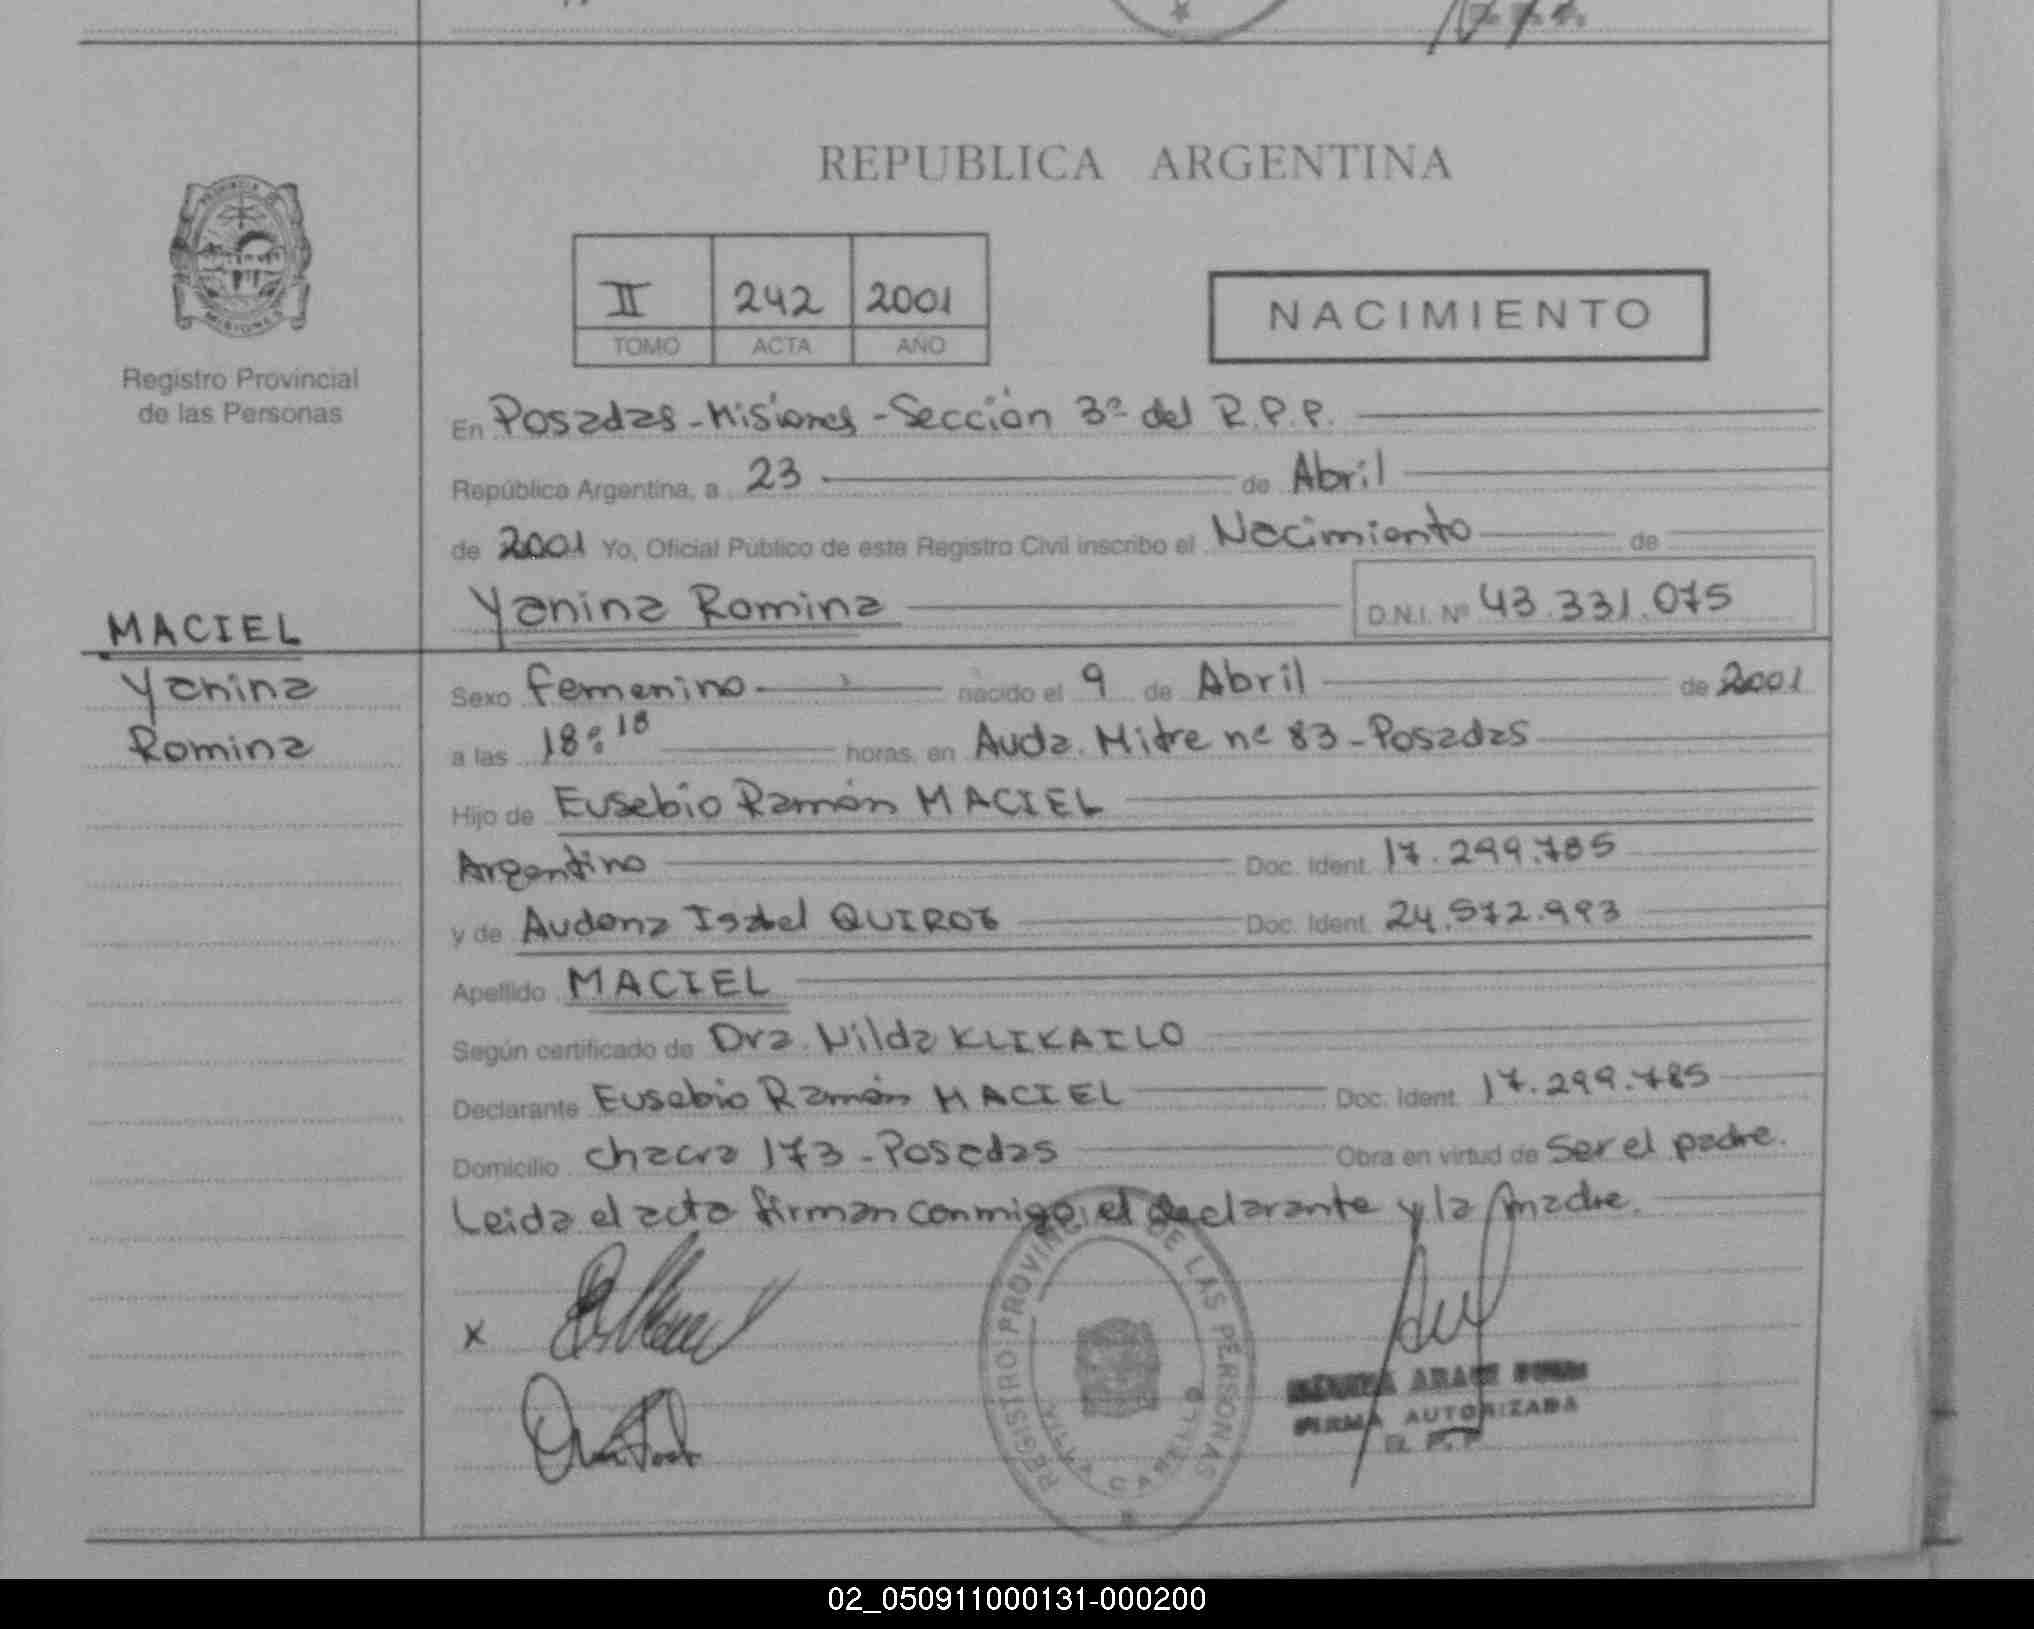 REPUBLICA ARGENTINA
II 242 2001
TOMO ACTA AÑO
NACIMIENTO
MISIONES
Registro Provincial
de las Personas
En Posadas-Misiones-Sección 3ª del R.P.P.
República Argentina, a 23 de Abril
de 2001 Yo, Oficial Público de este Registro Civil inscribo el Nacimiento de
Yanina Romina D.N.I. Nº 43.331.075
MACIEL
Yanina
Romina
Sexo femenino nacido el 9 de Abril de 2001
a las 18:18 horas, en Avda. Mitre nº 83-Posadas
Hijo de Eusebio Ramón MACIEL
Argentino Doc. Ident. 17.299.785
y de Isabel QUIROZ Doc. Ident. 24.572.993
Apellido MACIEL
Según certificado de Dra. Nilda KLIKAILO
Declarante Eusebio Ramón MACIEL Doc. Ident. 17.299.785
Domicilio chacra 173-Posadas Obra en virtud de ser el padre.
Leida el acta firman conmigo, el declarante y la madre.
x
REGISTRO PROVINCIAL DE LAS PERSONAS
VILLA CABELLO
FIRMA AUTORIZADA
R.P.P.
02_050911000131-000200